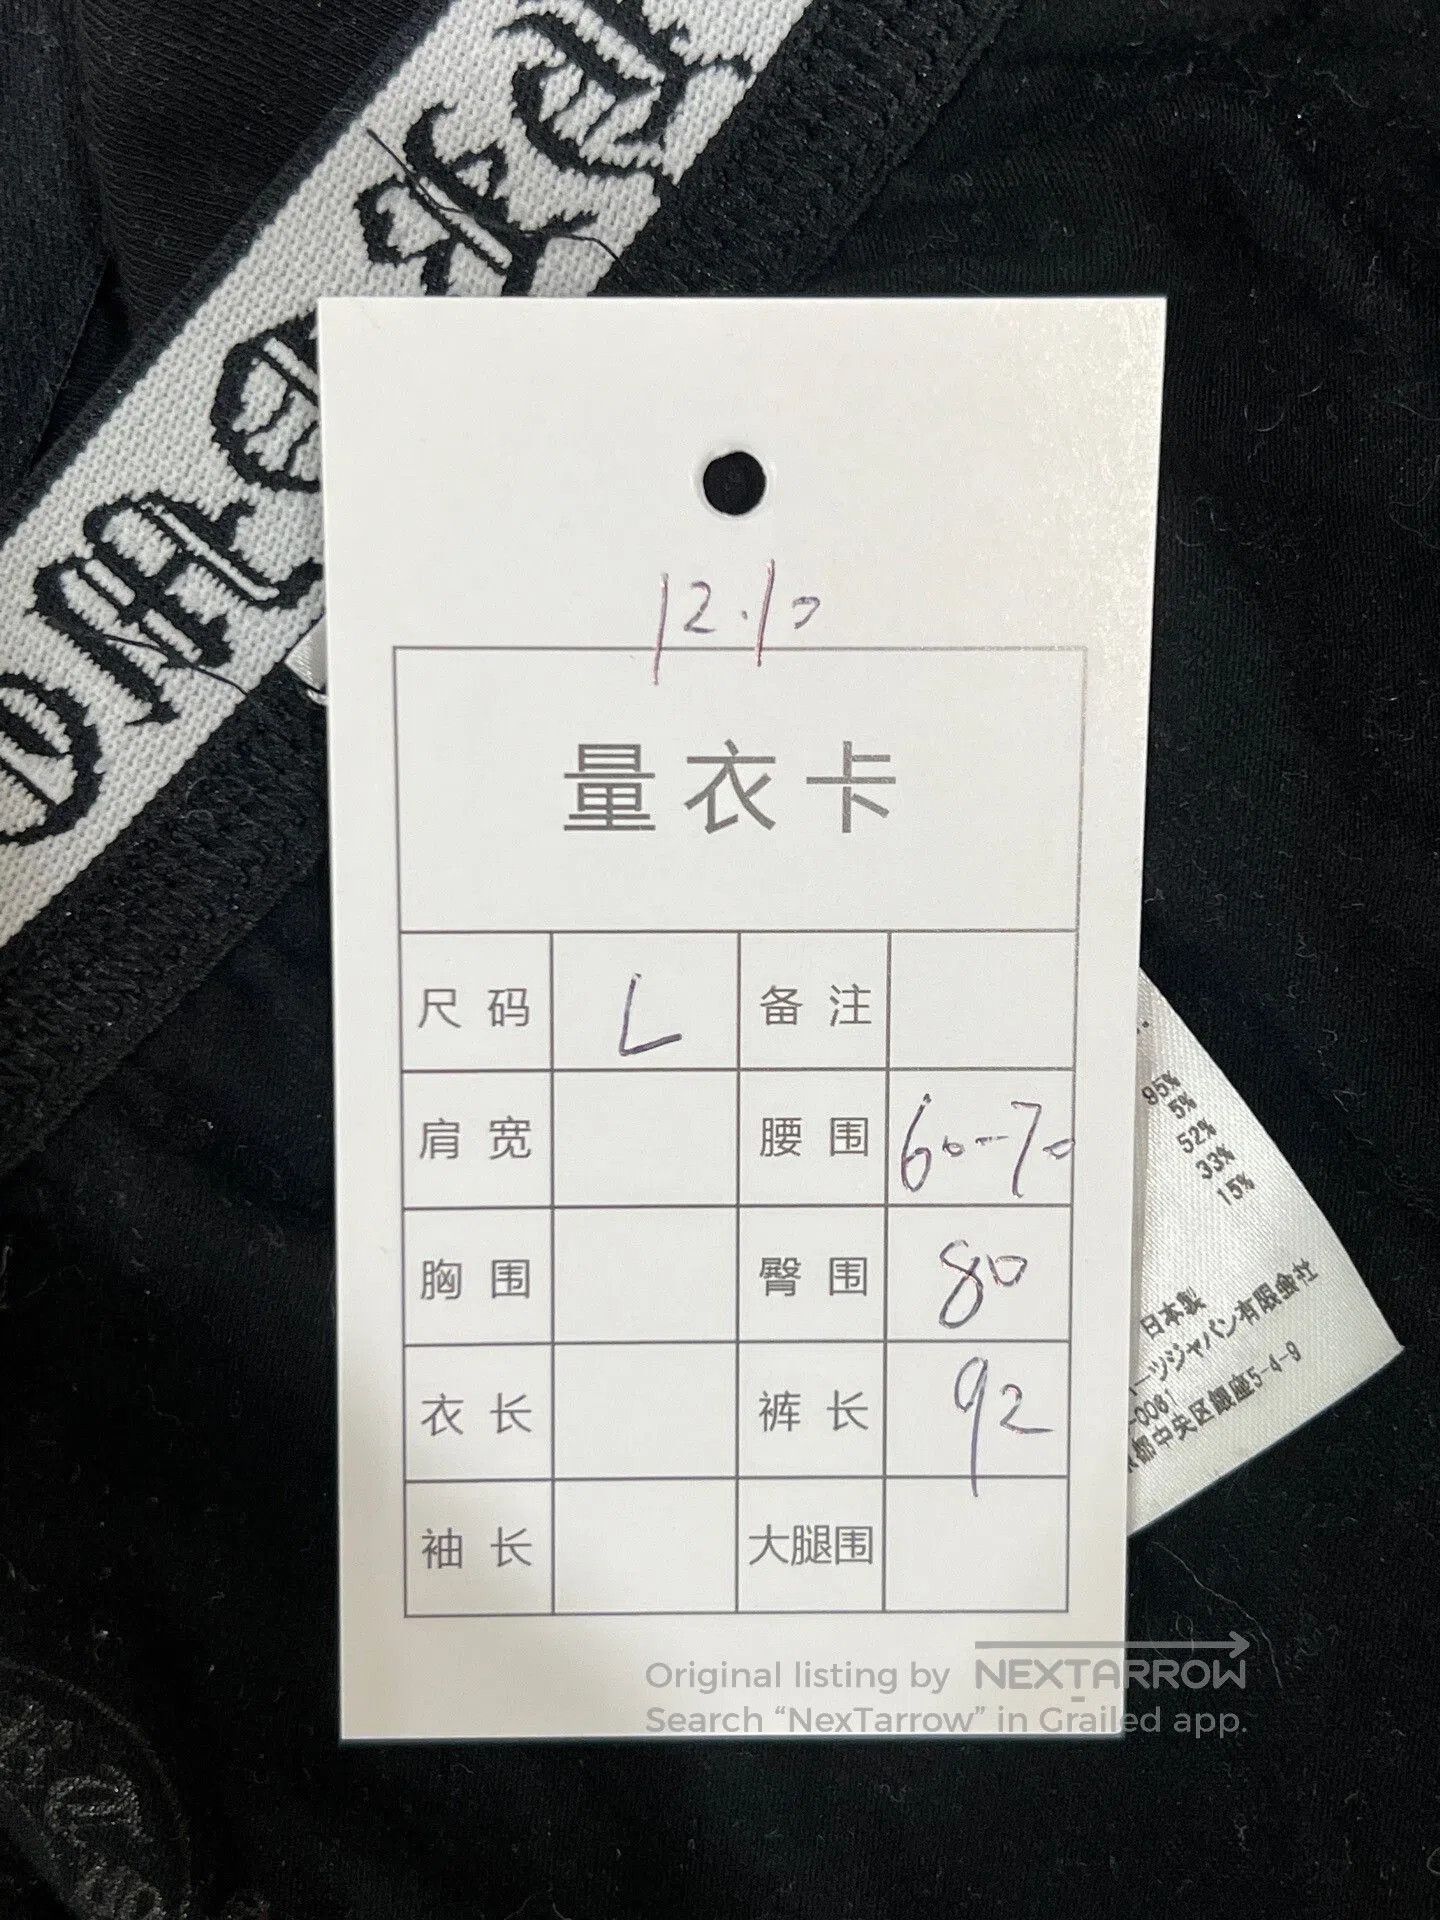 12.10
量衣卡
尺码 L 备注
肩宽 腰围 60-70
胸围 臀围 80
衣长 裤长 92
袖长 大腿围
95%
5%
52%
33%
15%
日本製
ーツジャパン有限会社
-0081
都中央区銀座5-4-9
Original listing by NEXTARROW
Search “NexTarrow” in Grailed app.